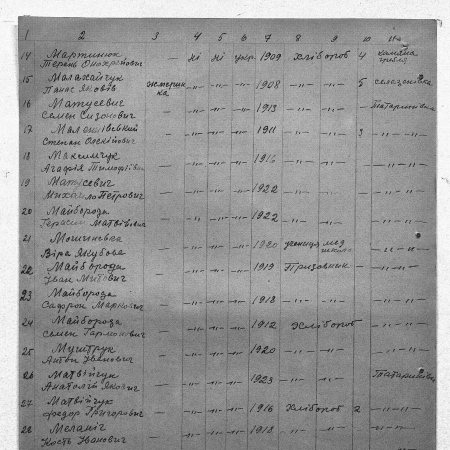 1 2 3 4 5 6 7 8 9 10 11
14 Мартинюк
Терень Онохрейович — ні ні укр 1909 Хлібороб 4
15 Малахайчук
Панас Якович — " — — " — — " — 1908 — " — — " — 5
16 Матусевич
Семен Сизонович — — " — — " — — " — 1913 — " — — " — —
17
Степан Олексійович — — " — — " — — " — 1911 — " — — " — 3 — " — " —
18 Максимчук
Агафія Тимофіївна — — " — — " — — " — 1916 — " — — " — — — " — " —
19 Матусевич
Михайло Петрович — — " — — " — — " — 1922 — " — — " — — — " — " —
20 Майборода
Герасим Матвійович — — " — — " — — " — 1922 — " — — " — — — " — " —
21
Віра Якубова — — " — — " — — " — 1920 учениця мед школи — — " — " —
22 Майборода
Іван Митович — — " — — " — — " — 1919 Призовник — — " — " —
23 Майборода
Сафрон Маркович — — " — — " — — " — 1918 — " — — " — — — " — " —
24 Майборода
Семен Гармонович — — " — — " — — " — 1912 Хлібороб — — " — " —
25 Мушtрук
Антон Іванович — — " — — " — — " — 1920 — " — — " — — — " — " —
26 Матвійчук
Анатолій Якович — — " — — " — — " — 1923 — " — — " — —
27 Матвійчук
Федор Григорович — — " — — " — — " — 1916 Хлібороб 2 — " — " —
28 Меланіч
Кость Іванович — — " — — " — — " — 1918 — " — — " — — — " — " —